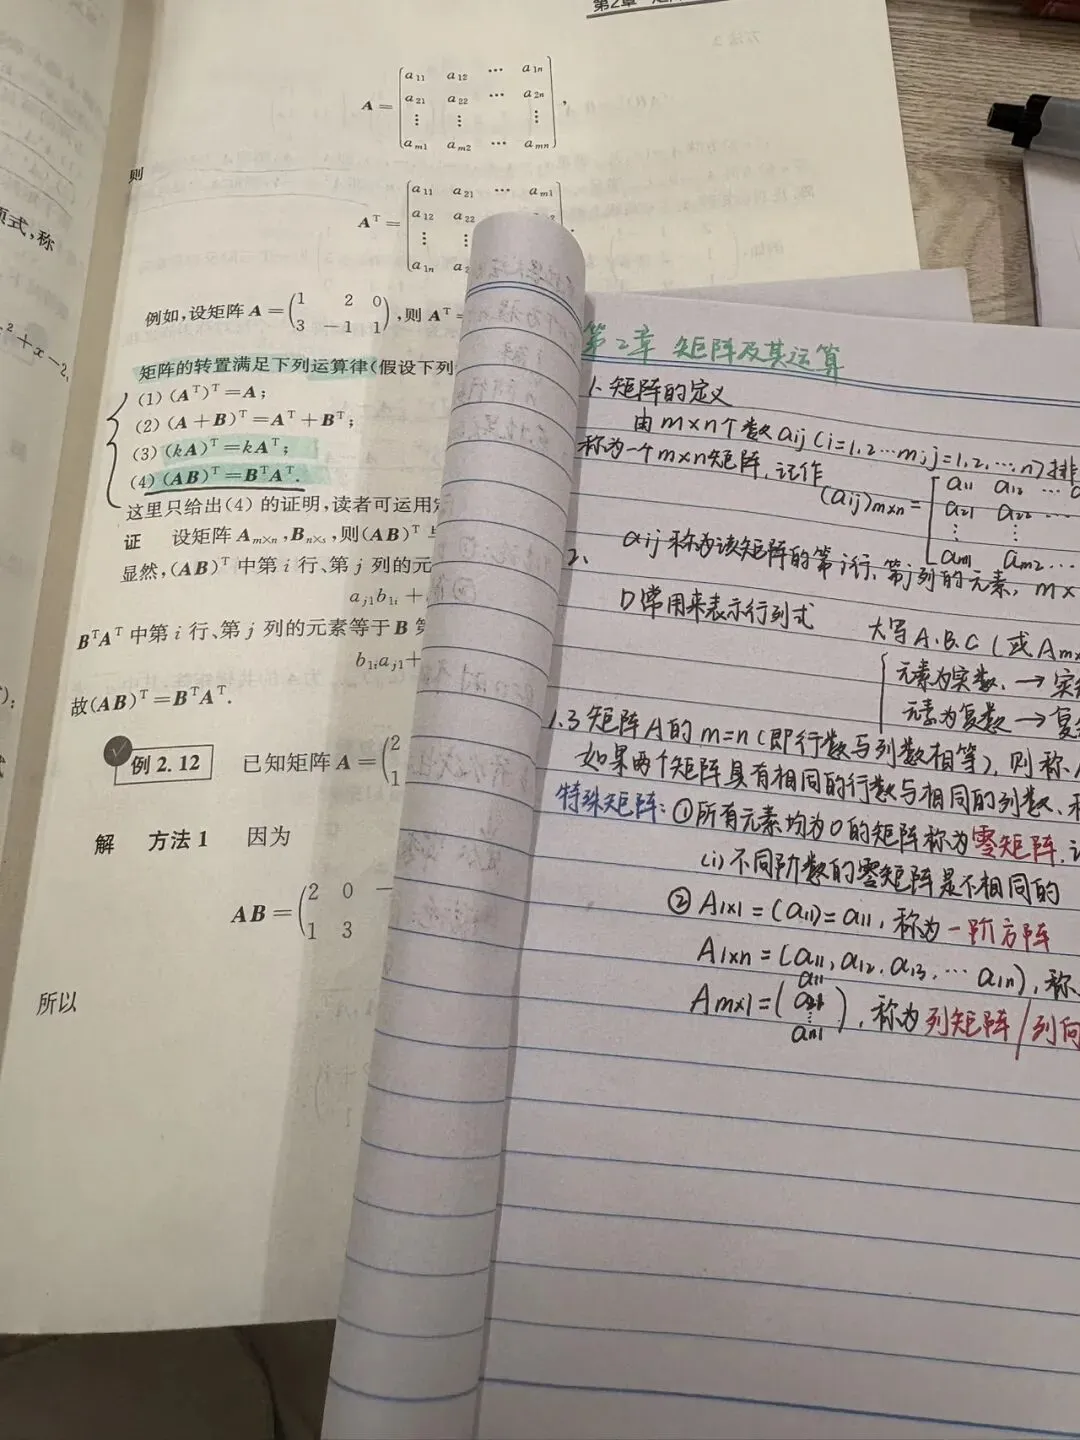 第2章
A = (a11 a12 ⋯ a1n
a21 a22 ⋯ a2n
⋮ ⋮ ⋮
am1 am2 ⋯ amn),
则
Aᵀ = (a11 a21 ⋯ am1
a12 a22
⋮ ⋮
a1n
例如,设矩阵 A = (1 2 0
3 −1 1),则 Aᵀ =
矩阵的转置满足下列运算律(假设下列
(1) (Aᵀ)ᵀ=A;
(2) (A+B)ᵀ=Aᵀ+Bᵀ;
(3) (kA)ᵀ=kAᵀ;
(4) (AB)ᵀ=BᵀAᵀ.
这里只给出(4) 的证明,读者可运用
证 设矩阵 Am×n,Bn×s,则(AB)ᵀ
显然,(AB)ᵀ 中第 i 行、第 j 列的元
aj1b1i +
BᵀAᵀ 中第 i 行、第 j 列的元素等于 B 第
b1iaj1+
故(AB)ᵀ=BᵀAᵀ.
例 2.12 已知矩阵 A = (2
1
解 方法 1 因为
AB = (2 0 −
1 3
所以
项式,称
² + x − 2,
第2章 矩阵及其运算
1、矩阵的定义
由 m×n个数 aij (i=1,2…m,j=1,2,…,n)排
称为一个m×n矩阵,记作
(aij)m×n = [a11 a12 … a
a21 a22 …
⋮ ⋮
am1 am2 …
aij 称为该矩阵的第i行、第j列的元素, m×
2、
D常用来表示行列式 大写A.B.C (或Am×
元素为实数、→ 实
元素为复数 → 复
1.3 矩阵A的 m=n (即行数与列数相等),则称
如果两个矩阵具有相同的行数与相同的列数、
特殊矩阵: ①所有元素均为0的矩阵称为零矩阵,
(i) 不同阶数的零矩阵是不相同的
② A1×1 = (a11) = a11, 称为一阶方阵
A1×n = (a11, a12, a13, … a1n), 称
Am×1 = (a11
a21
⋮
am1), 称为列矩阵/列向